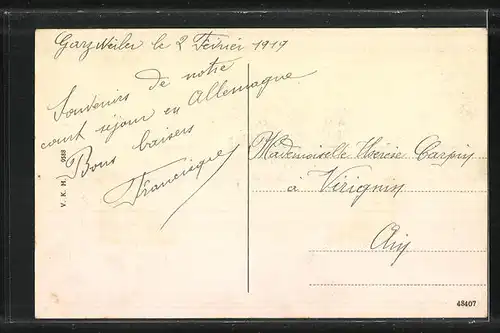 Garzweiler le 2 Février 1919
Souvenirs de notre
court séjour en Allemagne
Bons baisers
Francisque
Mademoiselle Thérèse Carpin
à Virignin
Ain
V. K. H. 9188
48407